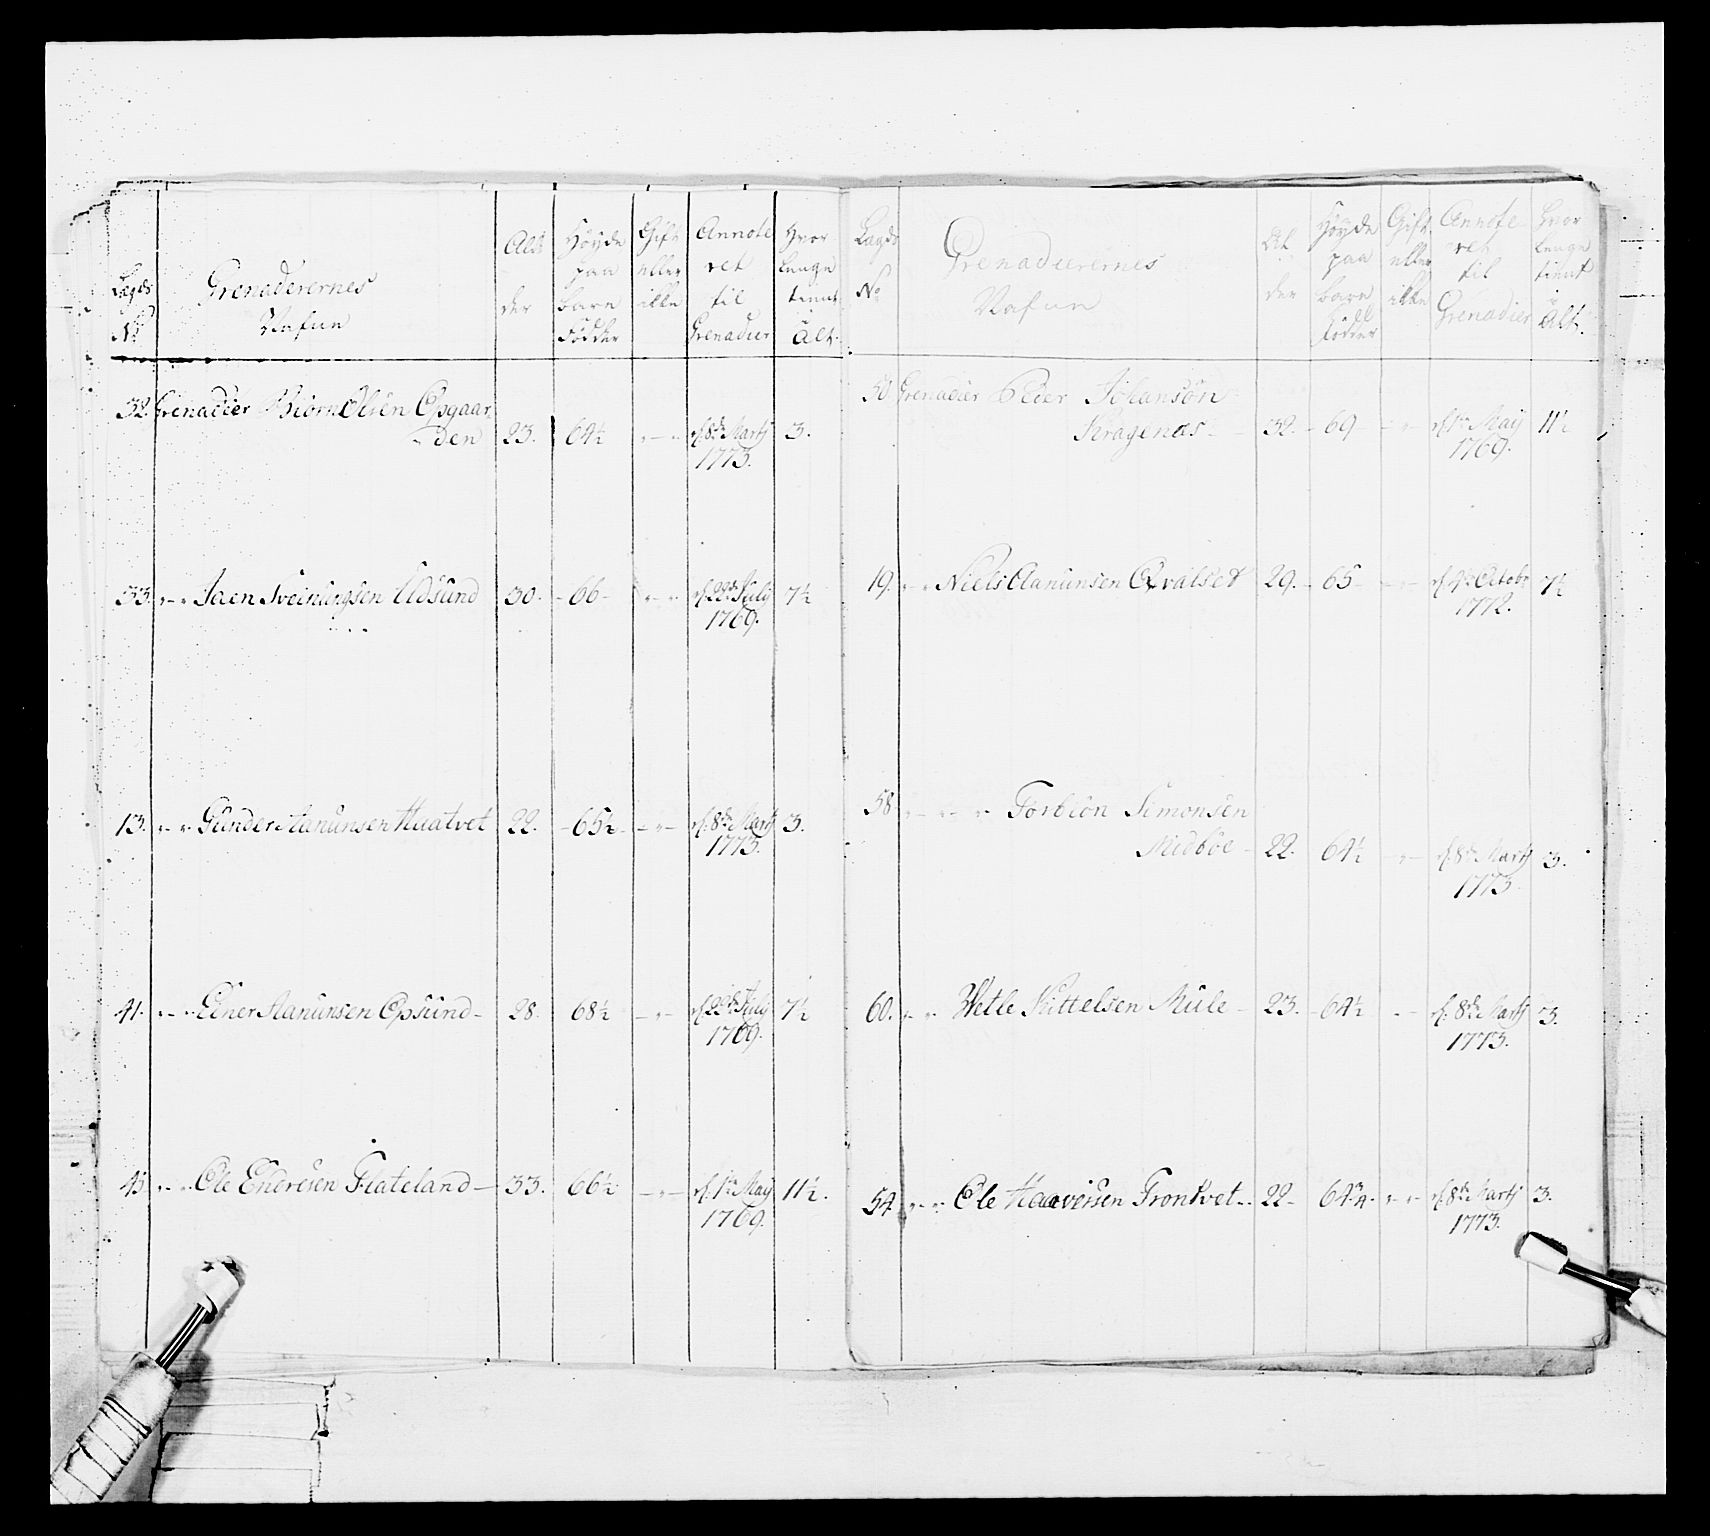 Lægds
No
Grenaderernes
Nafne
Al
der
Høyde
paa
bare
Födder
Gift
eller
ikke
Annote
ret
til
Grenadier
Hvor
lenge
tient
i
Alt.
32. Grenadier Biörn Olsen Opgaar
den 23. 64½ - - d. 8de Martj 3.
1773.
33. - - Jaen Sveinungsen Udsund 30. - 66 - - - d. 22de July 7½
1769.
13. - - Gunder Aanunsen Huatvet 22. - 65½ - - - d. 8de Martj 3.
1773.
41. - - Einer Aanunsen Opsund - 28. 68½ - - d. 22de July 7½
1769.
43. - - Ole Endresen Flateland - 33. 66½ - - - d. 1te May 11½.
1769.
Lægds
No
Grenadierernes
Nafne
Al
der
Høyde
paa
bare
födder
Gift
eller
ikke
Annote
ret
til
Grenadier
Hvor
lenge
tient
i
Alt.
50 Grenadier Peder Johansøn
Kragenæs - 32. - 69 - - - d. 1te May 11½
1769.
19. - - Niels Aanunsen Qvalset 29. - 65 - - - d. 4de Octobr 7½
1772.
58 - - - Torbiön Simonsen
Midböe - 22. 64½ - - - d. 8de Martj 3.
1773.
60. - - Wetle Kittelsen Mule - 23. - 64½ - - d. 8de Martj 3.
1773.
54 - - Ole Haaversen Trontvet - 22 - 64¾. - - d. 8de Martj 3.
1773.